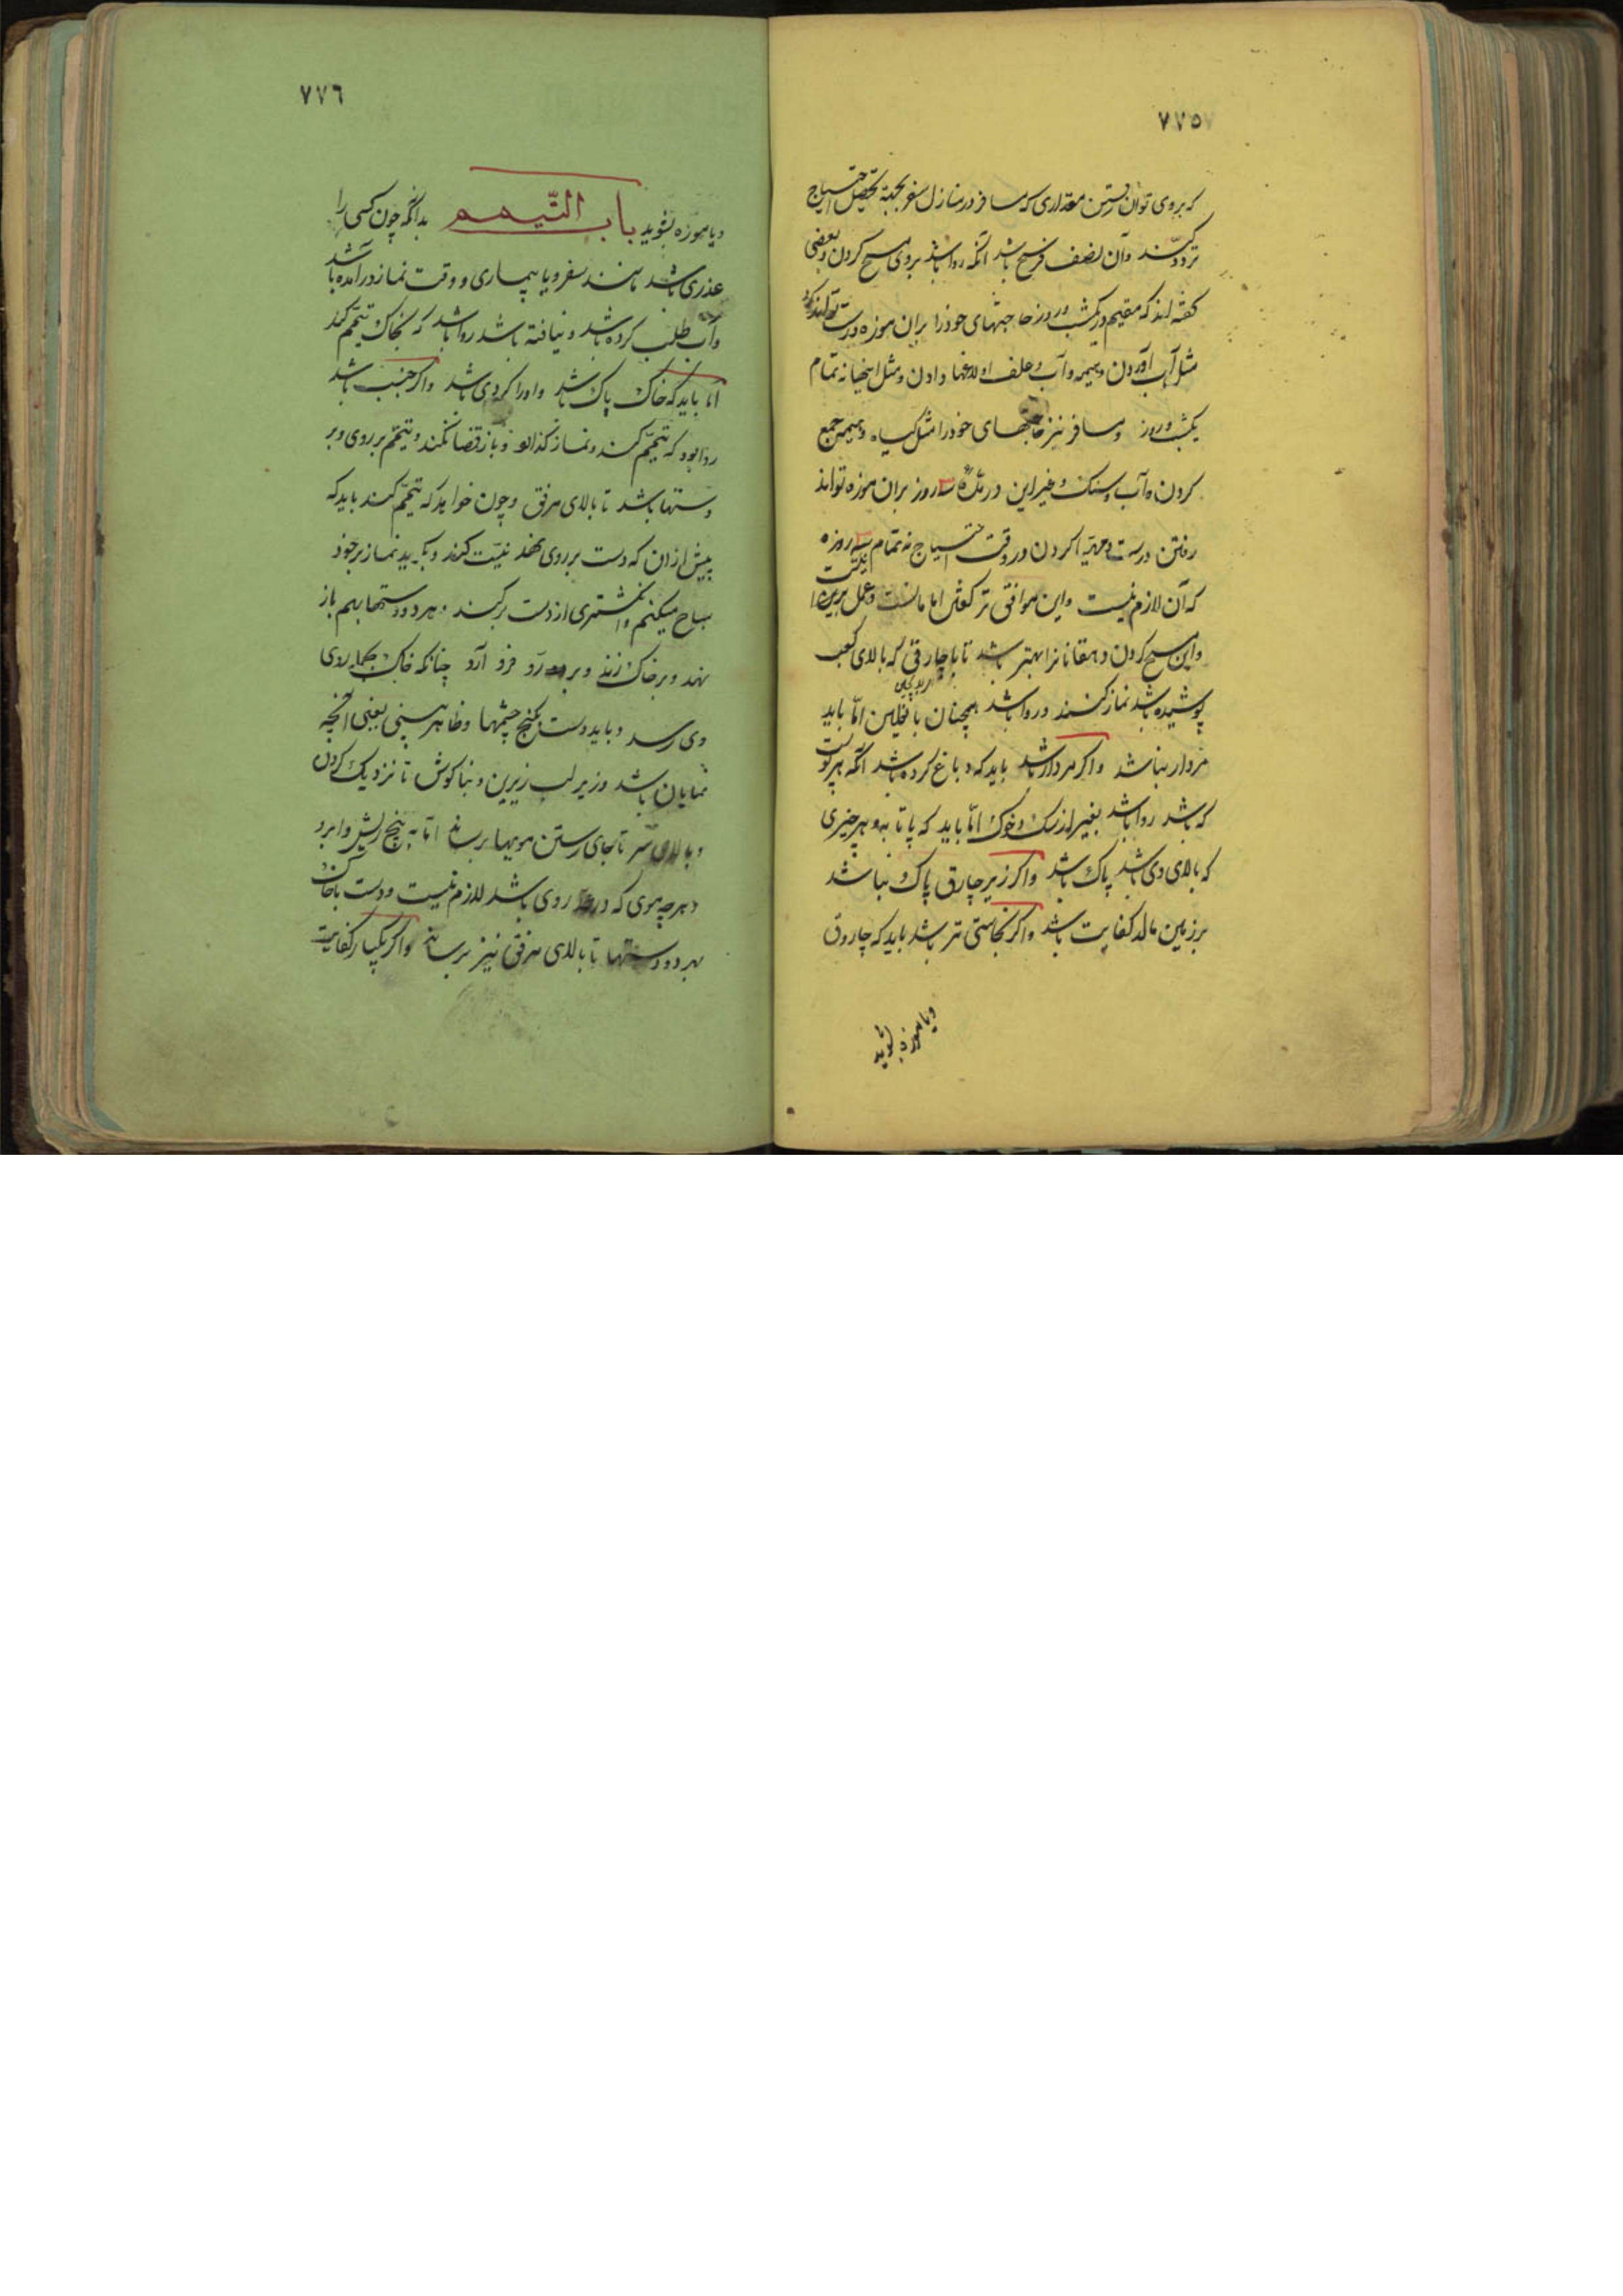 ٧٧٥
که بروی توان رفتن مقداری که مسافر در منازل سفر بجهة تحصیل احتیاج
تردد کند وآن نصف فرسخ باشد آنکه روا باشد بروی مسح کردن وبعضی
کفته اند که مقیم در یکشب وروز حاجتهای خود را بران موزه درست تواند کرد
مثل آب آوردن وهیمه وآب وعلف اولاغها دادن ومثل اینها نه تمام
یکشب وروز ومسافر نیز حاجتهای خود را مثل کیاه وهیمه جمع
کردن وآب وسنک وغیر این در مدّة سه روز بران موزه تواند
رفتن درست ومهیّا کردن در وقت احتیاج نه تمام سه روزه
که آن لازم نیست واین موافق تر امامانست وعمل برین
واین مسح کردن دهقانانرا بهتر باشد تا با چارقی که بالای کعب
پوشیده باشد نماز کنند وروا باشد همچنان با نعلین امّا باید
مردار نباشد واکر مردار باشد باید که دباغ کرده باشد آنکه هر پوست
که باشد روا باشد بغیر از سک وخوک امّا باید که پا تا به وهر چیزی
که بالای وی باشد پاک باشد واکر زیر چارق پاک نباشد
بر زمین مالد کفایت باشد واکر نجاستی تر باشد باید که چاروق
ویا موزه بشوید
٧٧٦
ویا موزه بشوید باب التّیمم بدانکه چون کسی را
عذری باشد مانند سفر ویا بیماری ووقت نماز درآمده باشد
وآب طلب کرده باشد ونیافته باشد روا باشد که بخاک تیمّم کند
امّا باید که خاک پاک باشد واورا کردی باشد واکر جنب باشد
روا بود که تیمّم کند ونماز کذارد وباز قضا نکند وتیمّم بر روی وبر
دستها باشد تا بالای مرفق وچون خواهد که تیمّم کند باید که
پیش از آن که دست بر روی نهد نیّت کند وبکوید نماز بر خود
مباح میکنم وانکشتری از دست برکند وهر دو دستها بهم باز
نهد وبر خاک زند وبر رو فرو آرد چنانکه خاک بهمه روی
وی رسد وباید دست بکنج چشمها وظاهر بینی یعنی آنچه
نمایان باشد وزیر لب زیرین وبناکوش تا نزدیک کردن
وبالای سر تا بجای رستن مویها برساند امّا به بیخ ریش وابرو
وهر چه موی که در روی باشد لازم نیست ودست با خاک
بهر دو دستها تا بالای مرفق نیز برساند واکر یکبار کفایت